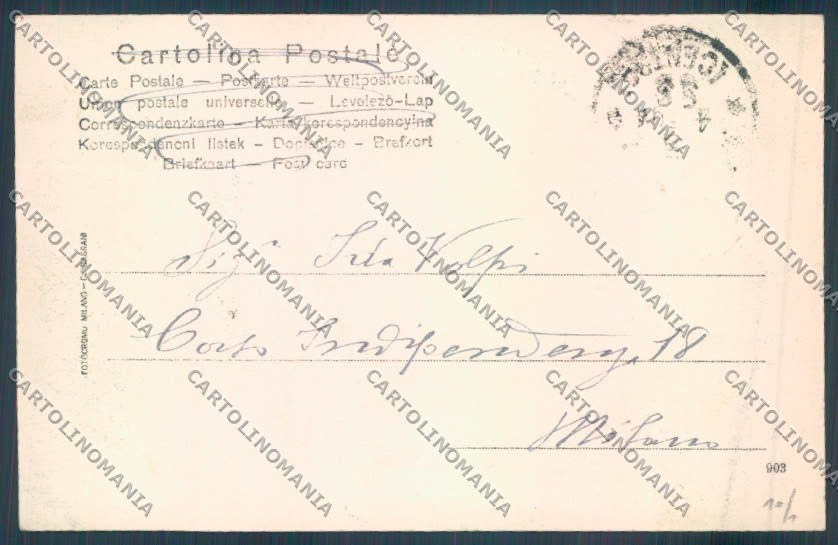 Cartolina Postale
Carte Postale — Postkarte — Weltpostverein
Union postale universelle — Levelezö-Lap
Correspondenzkarte — Karta korespondencyjna
Korespondencni listek — Dopisnice — Brefkort
Briefkaart — Post card
Sig.ra Volpi
Corso Indipendenza, 18
Milano
FOTOCROMO MILANO
903
CARTOLINOMANIA